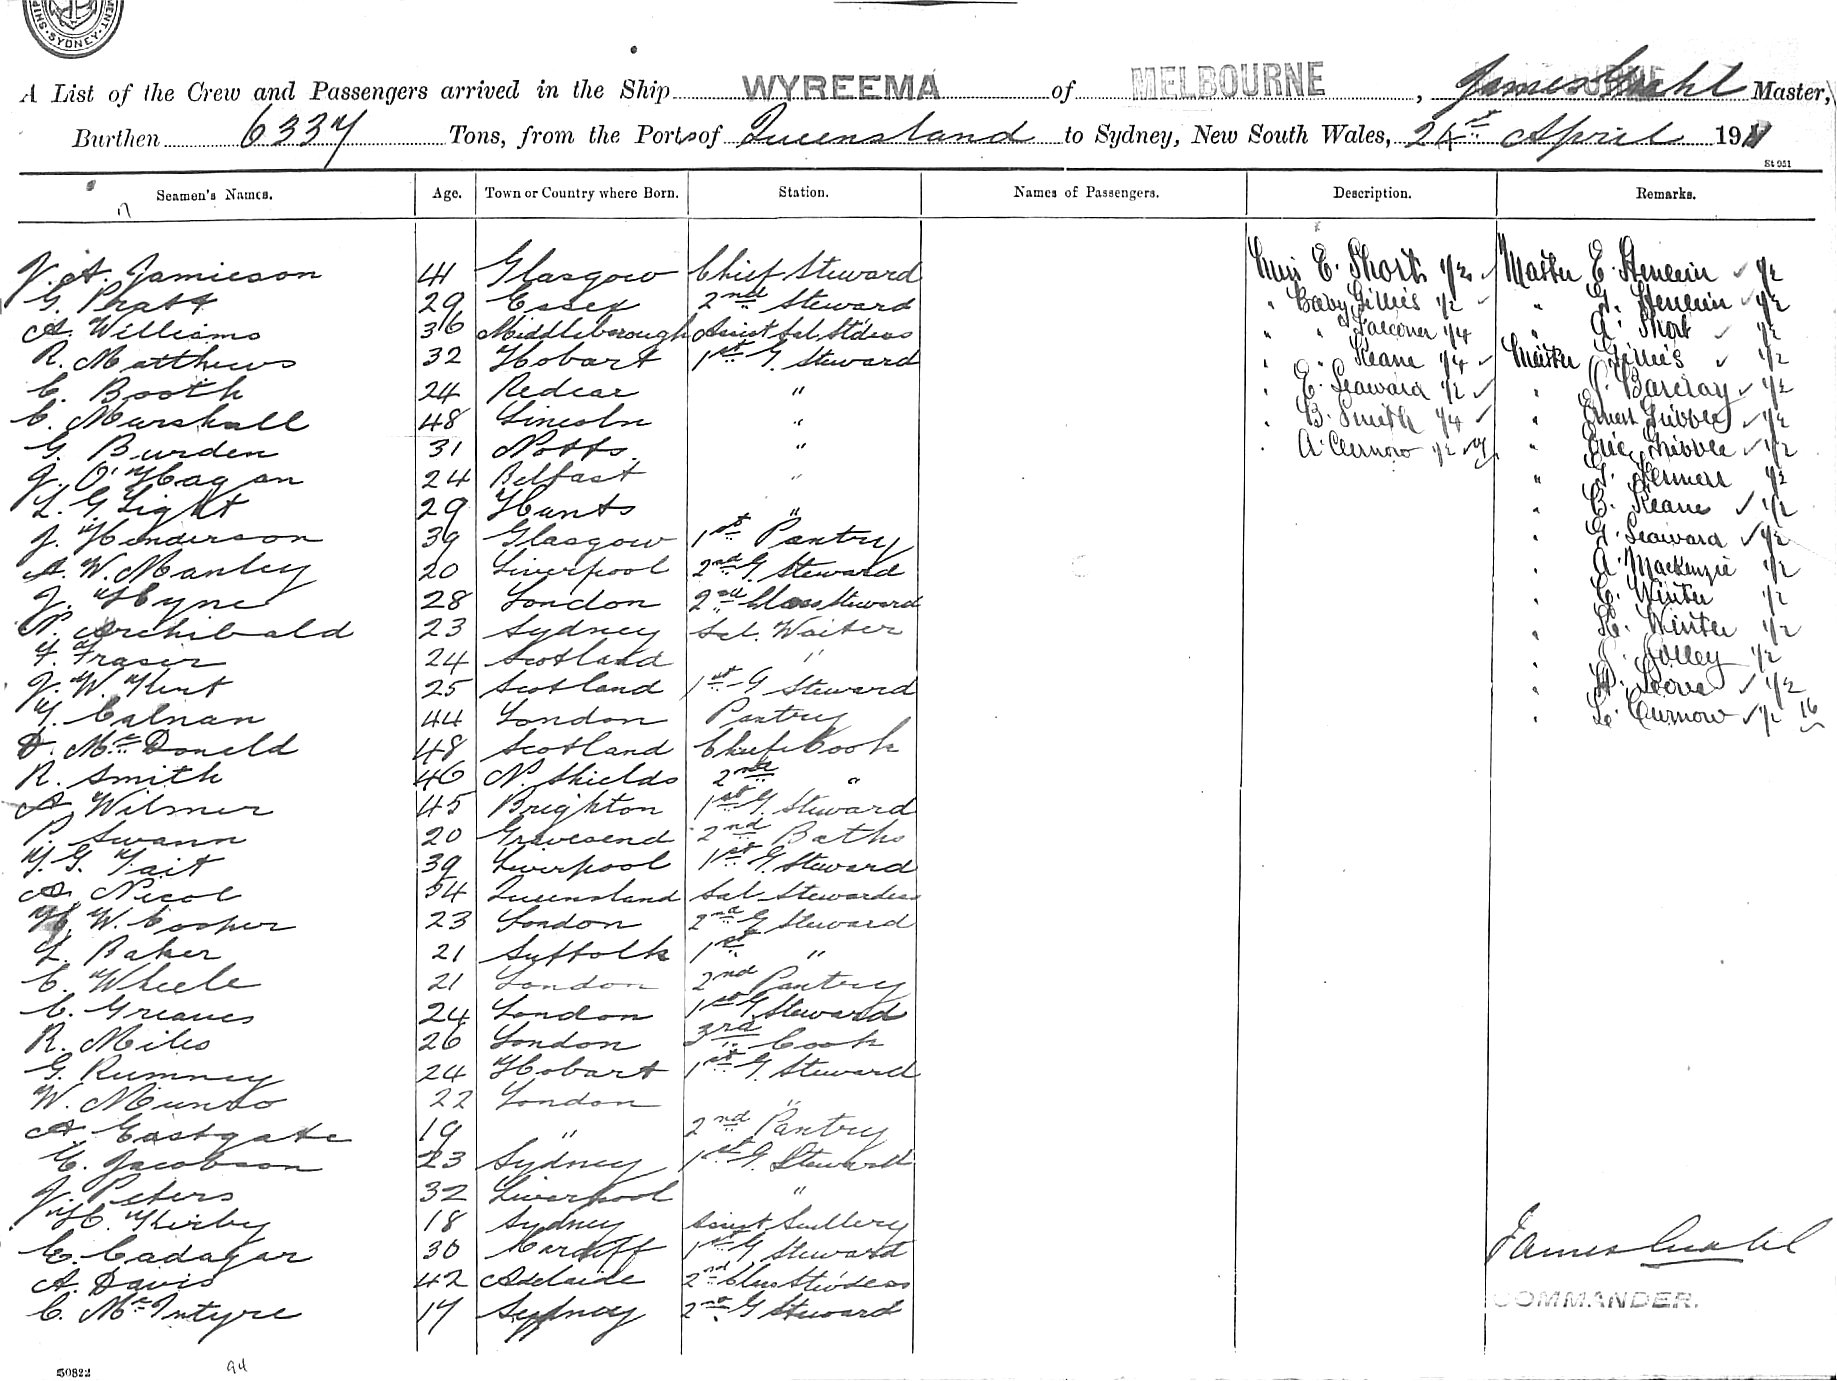 SYDNEY
A List of the Crew and Passengers arrived in the Ship WYREEMA of MELBOURNE, James Master,
Burthen 6337 Tons, from the Ports of Queensland to Sydney, New South Wales, April 191
St 951
Seamen's Names. Age. Town or Country where Born. Station. Names of Passengers. Description. Remarks.
J. A. Jamieson 41 Glasgow Chief Steward Miss E. Short 1/2 Master E. 1/2
G. Pratt 29 Essex 2nd Steward " Gillies 1/2 " G. 1/2
A. Williams 36 Middleborough Assist Sal. St'dess " " Falconer 1/4 " A. Short 1/2
R. Matthews 32 Hobart 1st G. Steward " " Keane 1/4 Master Gillies 1/2
C. Booth 24 Redcar " " E. Seaward 1/2 " J. Barclay 1/2
C. Marshall 48 Lincoln " " B. Smith 1/4 " Ernest Gribble 1/2
G. Burden 31 Notts. " " A. Curnow 1/2 7 " Eric Gribble 1/2
J. O'Hagan 24 Belfast " " G. 1/2
L. G. Light 29 Hunts " " C. Keane 1/2
J. Henderson 39 Glasgow 1st Pantry " G. Seaward 1/2
A. W. Manley 20 Liverpool 2nd G. Steward " A. Mackenzie 1/2
J. Hyne 28 London 2nd Class Steward " C. Winter 1/2
N. Archibald 23 Sydney Sal. Waiter " K. Winter 1/2
F. Fraser 24 Scotland " " J. Jolley 1/2
J. W. Kent 25 Scotland 1st G Steward " 1/2
Y. Calnan 44 London Pantry " L. Curnow 1/2 16
D. McDonald 48 Scotland Chief Cook
R. Smith 46 N. Shields 2nd "
A Wilmer 45 Brighton 1st G. Steward
P. Swann 20 Gravesend 2nd Baths
T. G. Tait 39 Liverpool 1st G. Steward
A. Nicol 34 Queensland Sal Stewardess
H. W. Cooper 23 London 2nd G Steward
L. Baker 21 Suffolk 1st "
C. Wheele 21 London 2nd Pantry
C. Greaves 24 London 1st G Steward
R. Miles 26 London 3rd Cook
G. Rumney 24 Hobart 1st G. Steward
W. Munro 22 London "
A Eastgate 19 " 2nd Pantry
E. Jacobson 23 Sydney 1st G. Steward
J. Peters 32 Liverpool "
J. H. Kirby 18 Sydney Assist Scullery
E. Cadagar 30 Cardiff 1st G Steward
A. Davis 42 Adelaide 2nd Class St'dess
C. McIntyre 17 Sydney 2nd G Steward
James
COMMANDER.
50822 94